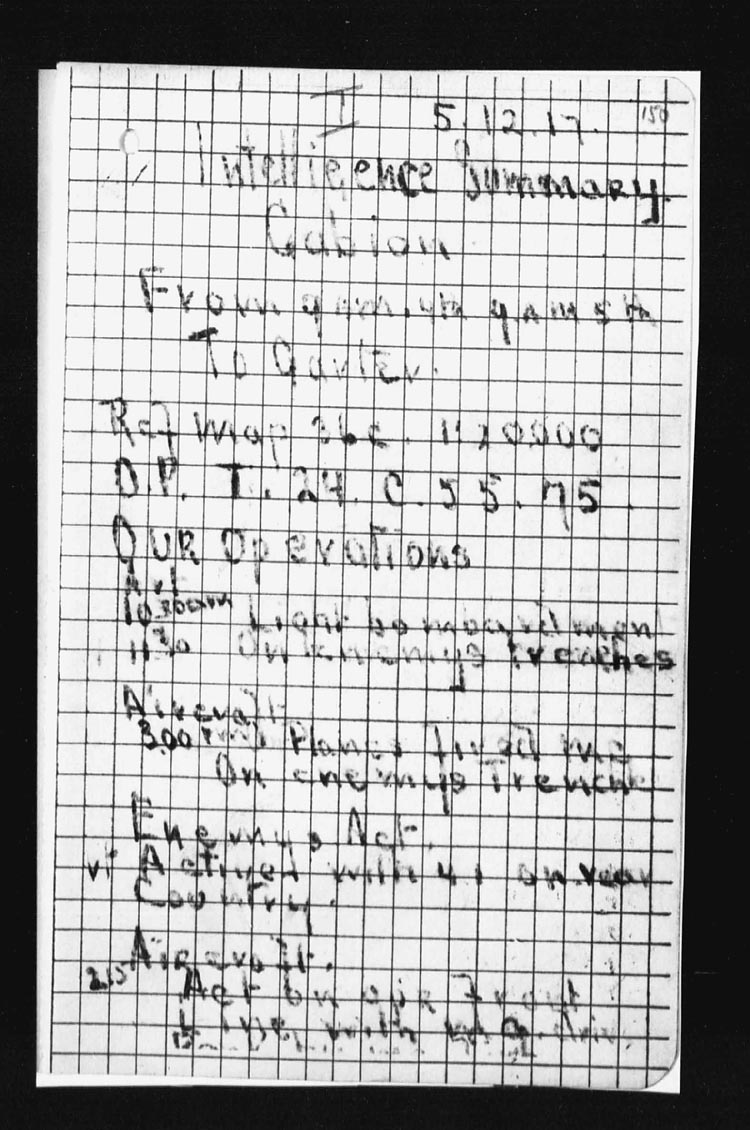 I 5.12.17. 150
Intelligence Summary
Gabion
From 9am. 4th 9am 5th
To Garter.
Ref Map 36c. 1:20000
O.P. T. 24. C. 55. 75.
OUR Operations
Art
10.30am Light bombardment
11 30 On enemys trenches
Aircraft
3.00 Planes fired MG
On enemys Trench
Enemys Act.
Actived with 4.1 on rear
Country.
Aircraft.
2.15 Act on our front
with